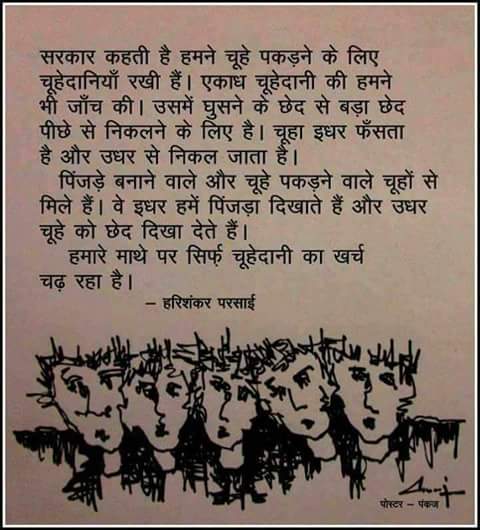 सरकार कहती है हमने चूहे पकड़ने के लिए
चूहेदानियाँ रखी हैं। एकाध चूहेदानी की हमने
भी जाँच की। उसमें घुसने के छेद से बड़ा छेद
पीछे से निकलने के लिए है। चूहा इधर फँसता
है और उधर से निकल जाता है।
पिंजड़े बनाने वाले और चूहे पकड़ने वाले चूहों से
मिले हैं। वे इधर हमें पिंजड़ा दिखाते हैं और उधर
चूहे को छेद दिखा देते हैं।
हमारे माथे पर सिर्फ़ चूहेदानी का खर्च
चढ़ रहा है।
– हरिशंकर परसाई
पोस्टर – पंकज